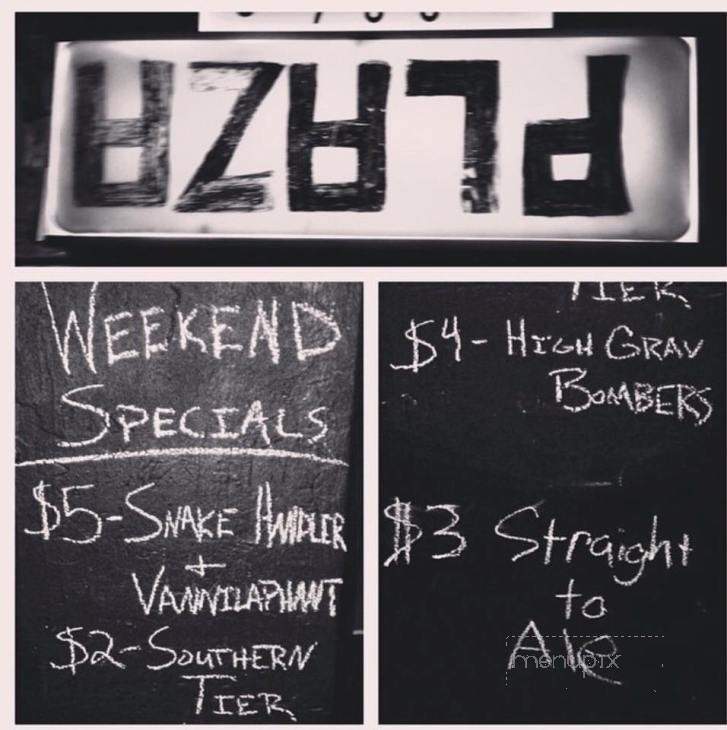 PLAZA
WEEKEND
SPECIALS
$5-SNAKE HANDLER
+
VANNILAPHANT
$2-SOUTHERN
TIER
TIER
$4-HIGH GRAV
BOMBERS
$3 Straight
to
Ale
menupix